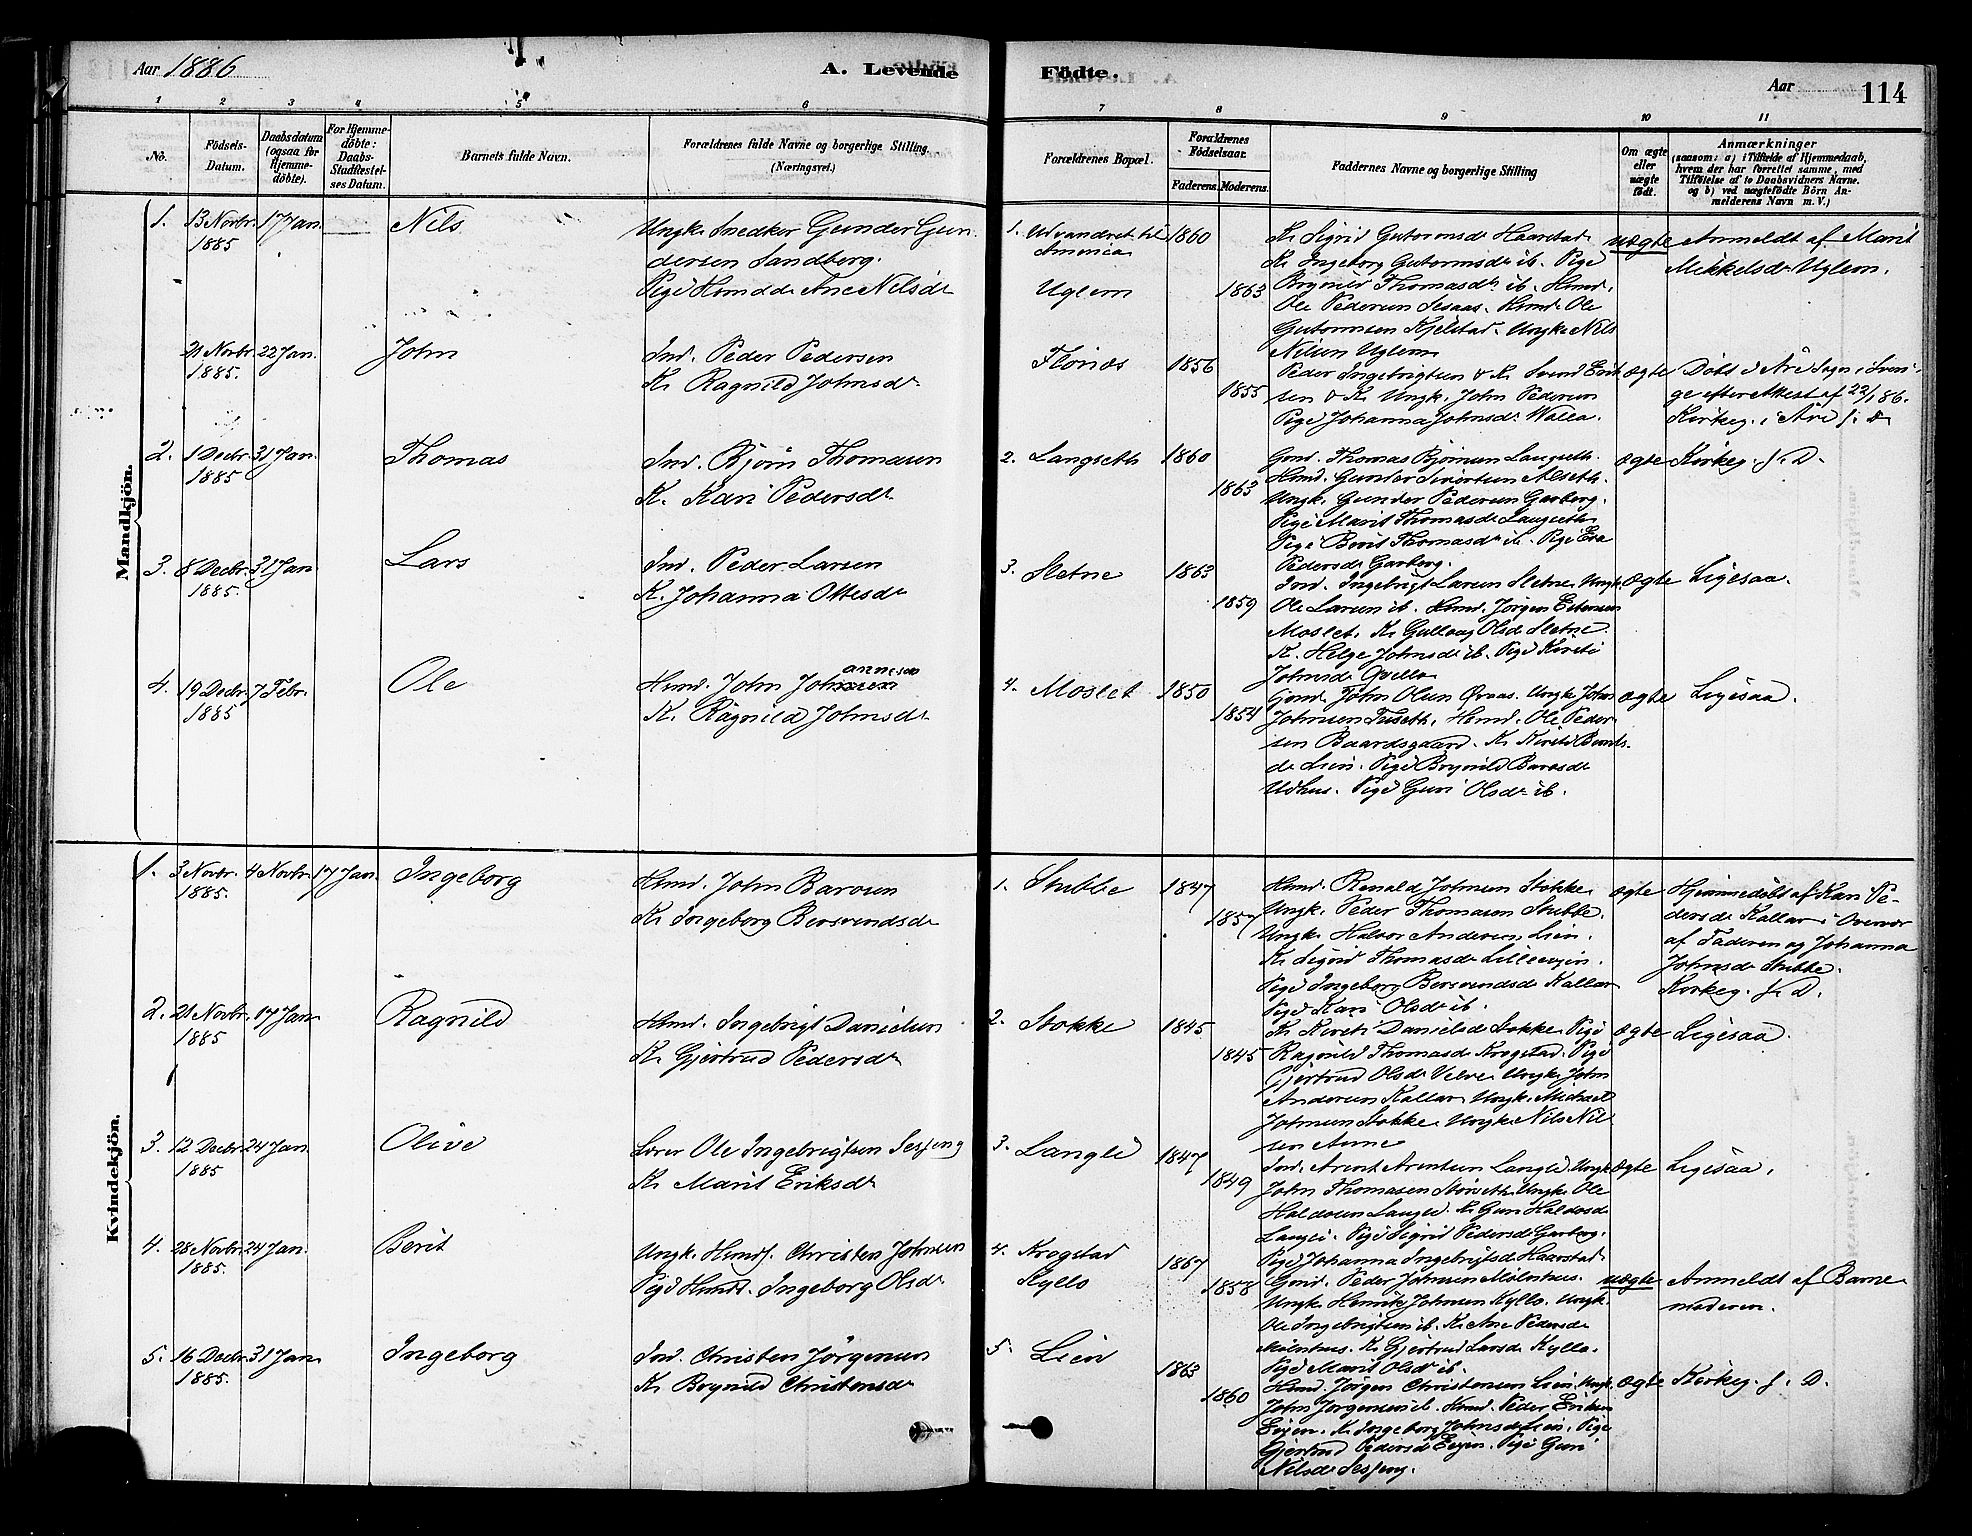 Aar 1886
A. Levende
Födte.
Aar
114
1
2
3
4
5
6
7
8
9
10
11
No.
Födsels-
Datum.
Daabsdatum
(ogsaa for
Hjemme-
döbte).
For Hjemme-
döbte:
Daabs-
Stadfæstel-
ses Datum.
Barnets fulde Navn.
Forældrenes fulde Navne og borgerlige Stilling.
(Næringsvei.)
Forældrenes Bopæl.
Forældrenes
Födselsaar.
Faderens.
Moderens.
Faddernes Navne og borgerlige Stilling
Om ægte
eller
uægte
födt.
Anmærkninger
(saasom: a) i Tilfælde af Hjemmedaab,
hvem der har forrettet samme, med
Tilföielse af to Daabsvidners Navne.
og b) ved uægtefödte Börn An-
melderens Navn m.V.)
Mandkjön.
1. 13 Novbr. 17 Jan.
1885
Nils
Ungk. Snedker Gunder Gun
dersen Sandberg.
Pige Hmdd. Ane Nilsdr
1. Udvandret til
America
Uglem
1860
1863
K. Sigrid Guttormsdr Haarstad.
K. Ingeborg Guttormsdr ib. Pige
Brynild Thomasdr ib. Hmd.
Ole Pedersen Sesaas. Hmd. Ole
Guttormsen Kjelstad. Ungk. Nils
Nilsen Uglem
uægte
Anmeldt af Marit
Mikkelsdr Uglem.
21 Novbr. 22 Jan.
1885.
John
Ind. Peder Pedersen
K. Ragnild Johnsdr
Flönæs
1856
1855
Peder Ingebrigtsen & K. Svend Erik
sen & K. Ungk. John Pedersen
Pige Johanna Johnsdr Walla.
ægte
Döbt i Åre Sogn i Sveri-
ge efter Attest af 22/1 86.
Kirkeg. i Åre f. D
2. 1 Decbr. 31 Jan.
1885
Thomas
Ind. Björn Thomasen
K. Kari Pedersdr
2. Langseth
1860
1863
Gmd. Thomas Björnsen Langseth.
Hmd. Gunder Sivertsen Alseth.
Ungk. Gunder Pedersen Garberg.
Pige Marit Thomasdr Langseth
Pige Berit Thomasdr ib. Pige Eva
Pedersdr Garberg.
ægte
Kirkeg. f. D.
3. 8 Decbr. 31 Jan
1885.
Lars
Ind. Peder Larsen
K. Johanna Ottesdr
3. Sletne
1863
1859
Ind. Ingebrigt Larsen Sletne. Ungk.
Ole Larsen ib. Hmd. Jörgen Estensen
Moslet. K. Gullaug Olsdr Sletne.
K. Helge Johnsdr ib. Pige Kirsti
Johnsdr Qvello
ægte
Ligesaa.
4. 19 Decbr. 7 Febr.
1885
Ole
Hmd. John Johannesen
K. Ragnild Johnsdr
4. Moslet
1850
1854
Gmd. John Olsen Øvaas. Ungk. John
Johnsen Fuseth. Hmd. Ole Peder
sen Baardsgaard. K. Kirsti Bernts-
dr Lien. Pige Brynild Barosdr
Udhus. Pige Guri Olsdr ib.
ægte
Ligesaa.
Kvindekjön.
1. 3 Novbr. 4 Novbr. 17 Jan.
1885.
Ingeborg
Hmd. John Barosen
K. Ingeborg Bersvendsdr
1. Stubbe
1847
1857
Hmd. Renald Johnsen Stokke.
Ungk. Peder Thomasen Stubbe.
Ungk. Halvor Andersen Lien.
K. Sigrid Thomasdr Lilleevjen.
Pige Ingeborg Bersvendsdr Kallar
Pige Kari Olsdr ib.
ægte
Hjemmedöbt af Kari Pe-
dersdr Kallar i Overvær
af Faderen og Johanna
Johnsdr Stubbe.
Kirkeg. f. D.
2. 21 Novbr. 17 Jan.
1885
Ragnild
Hmd. Ingebrigt Danielsen
K. Gjertrud Pedersdr
2. Stokke
1845
1845
K. Kirsti Danielsd Stokke. Pige
Ragnild Thomasdr Krogstad. Pige
Gjertrud Olsdr Velve. Ungk. John
Andersen Kallar. Ungk. Michael
Johnsen Stokke. Ungk. Nils Nil
sen Aune
ægte
Ligesaa.
3. 12 Decbr. 24 Jan.
1885
Olive
Lærer Ole Ingebrigtsen Sesseng
K. Marit Eriksdr
3. Langli
1847
1849
Ind. Arnt Arntsen Langli. Ungk.
John Thomasen Störseth. Ungk. Ole
Haldorsen Langli. K. Guri Haldorsdr
Langli. Pige Sigrid Pedersdr Garberg.
Pige Johanna Ingebrigtsdr Haarstad.
ægte
Ligesaa.
4. 28 Novbr. 24 Jan.
1885.
Berit
Ungk. Hmds. Christen Johnsen
Pige Hmds. Ingeborg Olsdr
4. Krogstad
Kyllo
1867
1858
Gmd. Peder Johnsen Mölnhus.
Ungk. Henrik Johnsen Kyllo. Ungk.
Ole Ingebrigtsen ib. K. Ane Pedersdr
Mölnhus. K. Gjertrud Larsdr Kyllo.
Pige Marit Olsdr ib.
uægte
Anmeldt af Barne
moderen.
5. 16 Decbr. 31 Jan.
1885.
Ingeborg
Ind. Christen Jörgensen
K. Brynild Christensdr
5. Lien
1863
1860
Hmd. Jörgen Christensen Lien. Ungk.
John Jörgensen ib. Hmd. Peder Eriksen
Evjen. K. Ingeborg Johnsdr Lien. Pige
Gjertrud Pedersdr Evjen. Pige Guri
Nilsdr Sesseng.
ægte
Kirkeg. f. D.